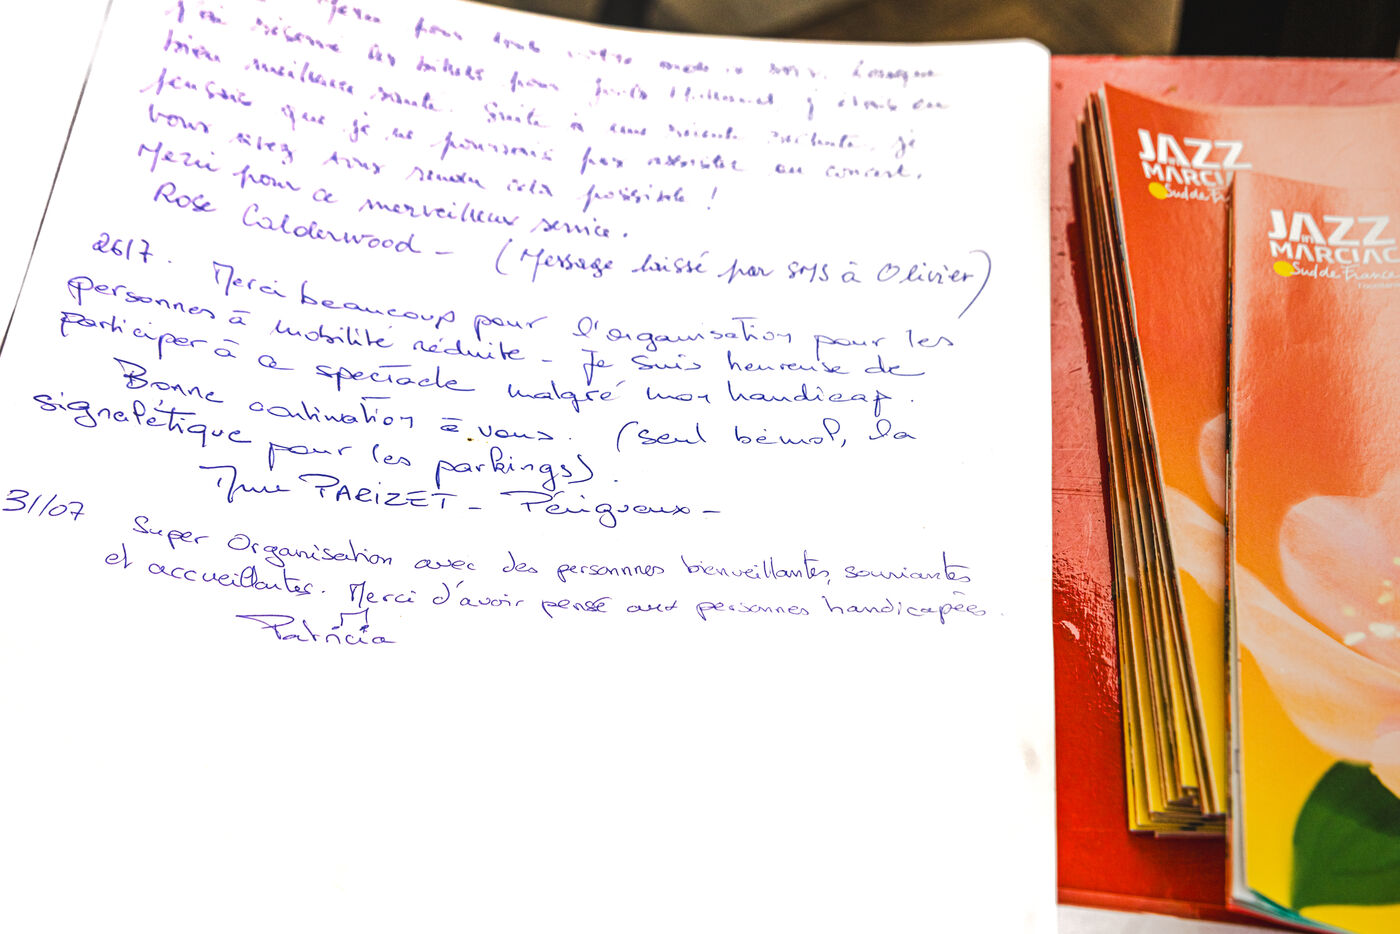 pour
j'ai réservé les billets pour j'étais en
bien meilleure santé. Suite à une récente rechute, je
pensais que je ne pourrais pas assister au concert.
Vous avez tous rendu cela possible !
Merci pour ce merveilleux service.
Rose Calderwood - (Message laissé par SMS à Olivier)
26/7. Merci beaucoup pour l'organisation pour les
personnes à mobilité réduite - Je suis heureuse de
participer à ce spectacle malgré mon handicap.
Bonne continuation à vous. (seul bémol, la
signalétique pour les parkings).
Mme PARIZET - Périgueux -
31/07 Super Organisation avec des personnnes bienveillantes, souriantes
et accueillantes. Merci d'avoir pensé aux personnes handicapées.
Patricia
JAZZ
in
MARCIAC
Sud de France
JAZZ
in
MARCIAC
Sud de France